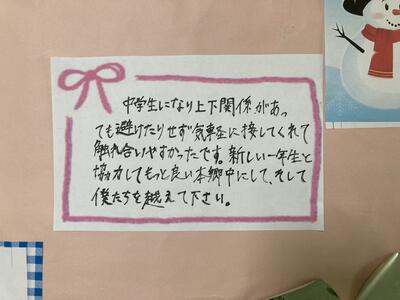 中学生になり上下関係があっ
ても避けたりせず気軽に接してくれて
触れ合いやすかったです。新しい一年生と
協力してもっと良い本郷中にして、そして
僕たちを越えて下さい。